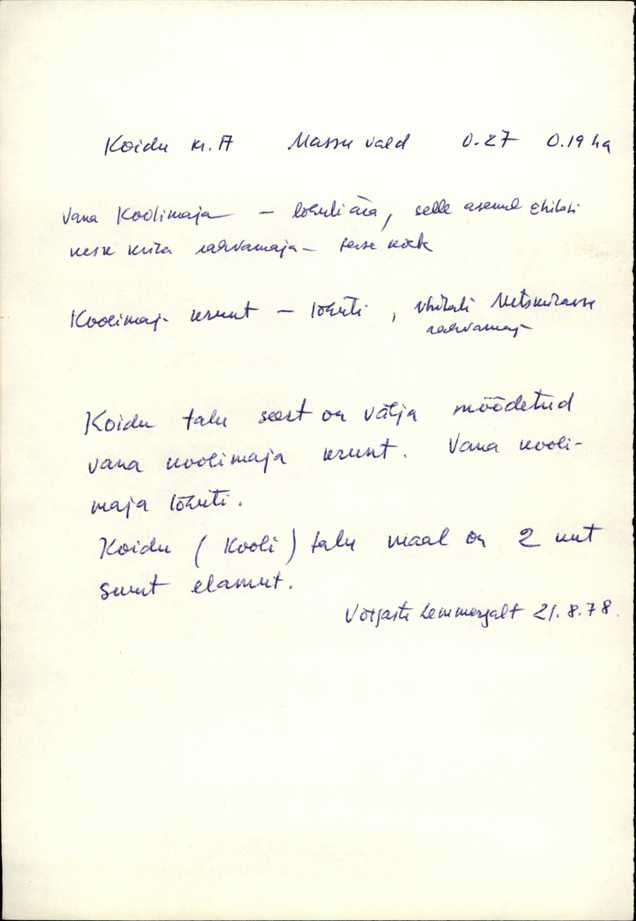 Koidu kr. A Massu vald 0.27 0.19 ha
Vana Koolimaja - lõhuti ära, selle asemel ehitati
rahvamaja -
Koolimaja krunt - lõhuti, ehitati Metskülasse
rahvamaja
Koidu talu seest on välja mõõdetud
vana koolimaja krunt. Vana kooli-
maja lõhuti.
Koidu (Kooli) talu maal on 2 uut
suurt elamut.
21.8.78.